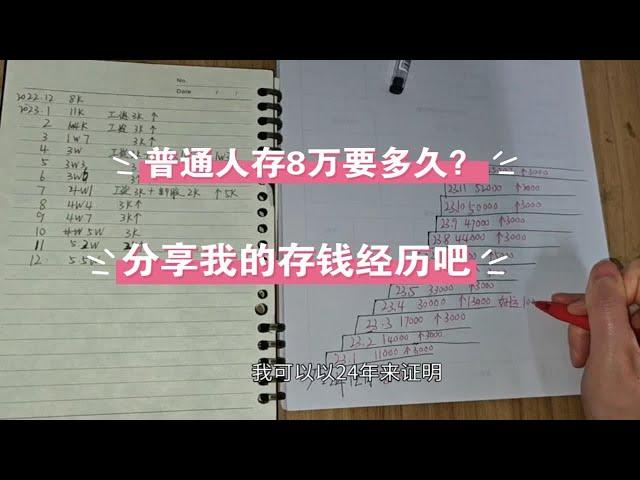 No.
Date / /
2022.12 8K
2023.1 11K 工资3K↑
2 14K 工资3K↑
3 1W7 3K↑
4 3W
5 3W3
6 3W6
7 4W1 工资3K+ 2K ↑5K
8 4W4 3K↑
9 4W7 3K↑
10 5W 3K
11 5.2W
12.
普通人存8万要多久?
分享我的存钱经历吧
↑3000
23.11 52000 ↑2000
23.10 50000 ↑3000
23.9 47000 ↑3000
23.8 44000 ↑3000
23.5 33000 ↑3000
23.4 30000 ↑13000
23.3 17000 ↑3000
23.2 14000 ↑3000
23.1 11000 ↑3000
我可以以24年来证明